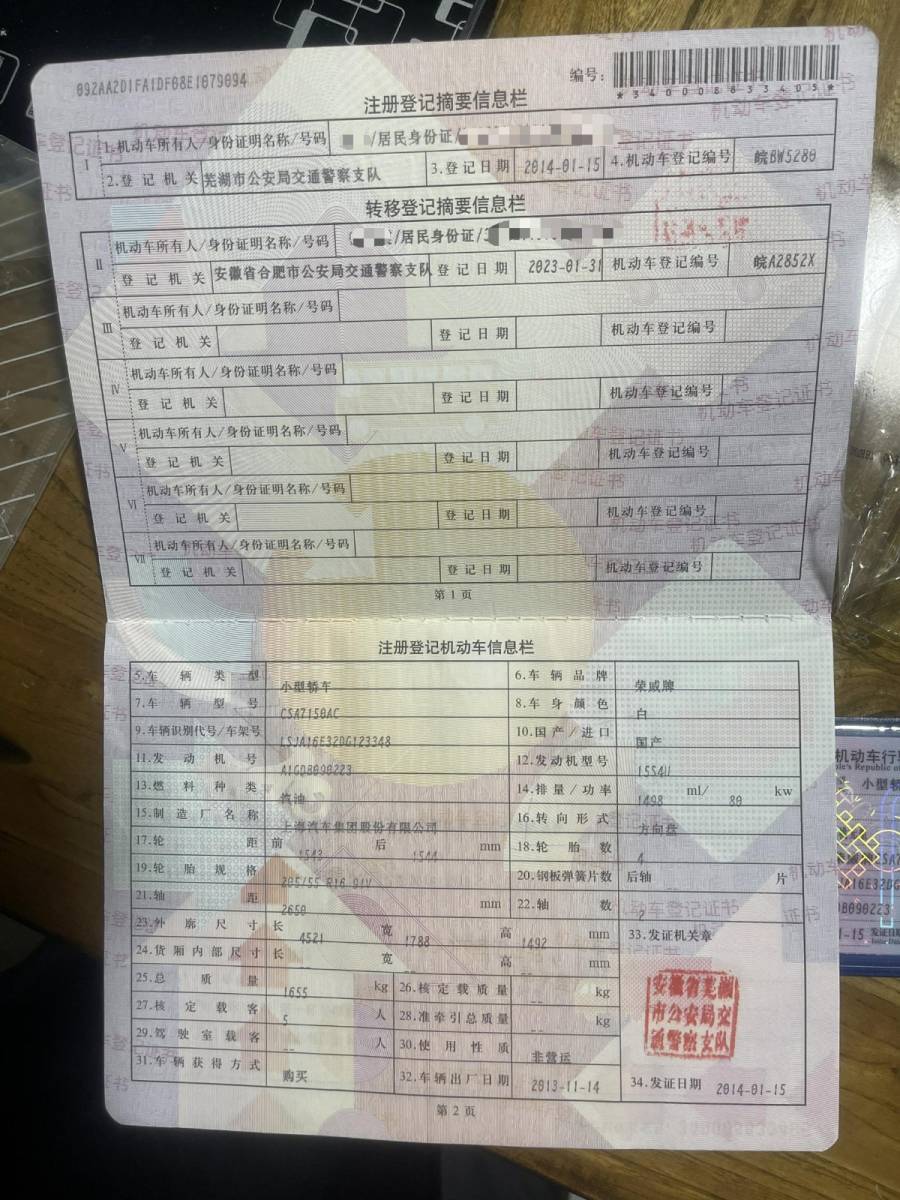 092AA2D1FA1DF08E1079094
编号:
*340008833405*
注册登记摘要信息栏
I
1.机动车所有人/身份证明名称/号码 /居民身份证/
2.登记机关 芜湖市公安局交通警察支队 3.登记日期 2014-01-15 4.机动车登记编号 皖BW5280
转移登记摘要信息栏
II
机动车所有人/身份证明名称/号码 /居民身份证/
登记机关 安徽省合肥市公安局交通警察支队 登记日期 2023-01-31 机动车登记编号 皖A2852X
III
机动车所有人/身份证明名称/号码
登记机关 登记日期 机动车登记编号
IV
机动车所有人/身份证明名称/号码
登记机关 登记日期 机动车登记编号
V
机动车所有人/身份证明名称/号码
登记机关 登记日期 机动车登记编号
VI
机动车所有人/身份证明名称/号码
登记机关 登记日期 机动车登记编号
VII
机动车所有人/身份证明名称/号码
登记机关 登记日期 机动车登记编号
第1页
注册登记机动车信息栏
5.车辆类型 小型轿车 6.车辆品牌 荣威牌
7.车辆型号 CSA7150AC 8.车身颜色 白
9.车辆识别代号/车架号 LSJA16E32DG123348 10.国产/进口 国产
11.发动机号 A1GDB090223 12.发动机型号 15S4U
13.燃料种类 汽油 14.排量/功率 1498 ml/ 80 kw
15.制造厂名称 上海汽车集团股份有限公司 16.转向形式 方向盘
17.轮距 前 1543 后 1544 mm 18.轮胎数 4
19.轮胎规格 205/55 R16 91V 20.钢板弹簧片数 后轴 -- 片
21.轴距 2650 mm 22.轴数 2
23.外廓尺寸 长 4521 宽 1788 高 1492 mm 33.发证机关章
24.货厢内部尺寸 长 -- 宽 -- 高 -- mm
25.总质量 1655 kg 26.核定载质量 -- kg
27.核定载客 5 人 28.准牵引总质量 -- kg
29.驾驶室载客 -- 人 30.使用性质 非营运
31.车辆获得方式 购买 32.车辆出厂日期 2013-11-14 34.发证日期 2014-01-15
安徽省芜湖
市公安局交
通警察支队
第2页
机动车行驶
小型轿
LSA7
JA16E32DG
DB090223
1-15 发证日期